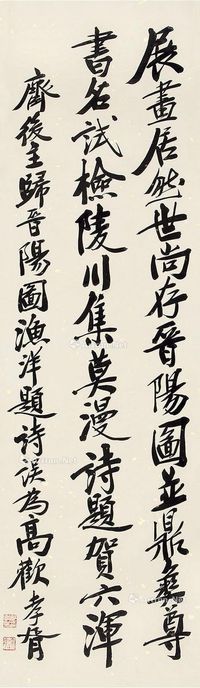 展畫居然世尚存晉陽圖並鼎彝尊
書名試檢陵川集莫漫詩題賀六渾
齊後主歸晉陽圖漁洋題詩誤為高歡 孝胥